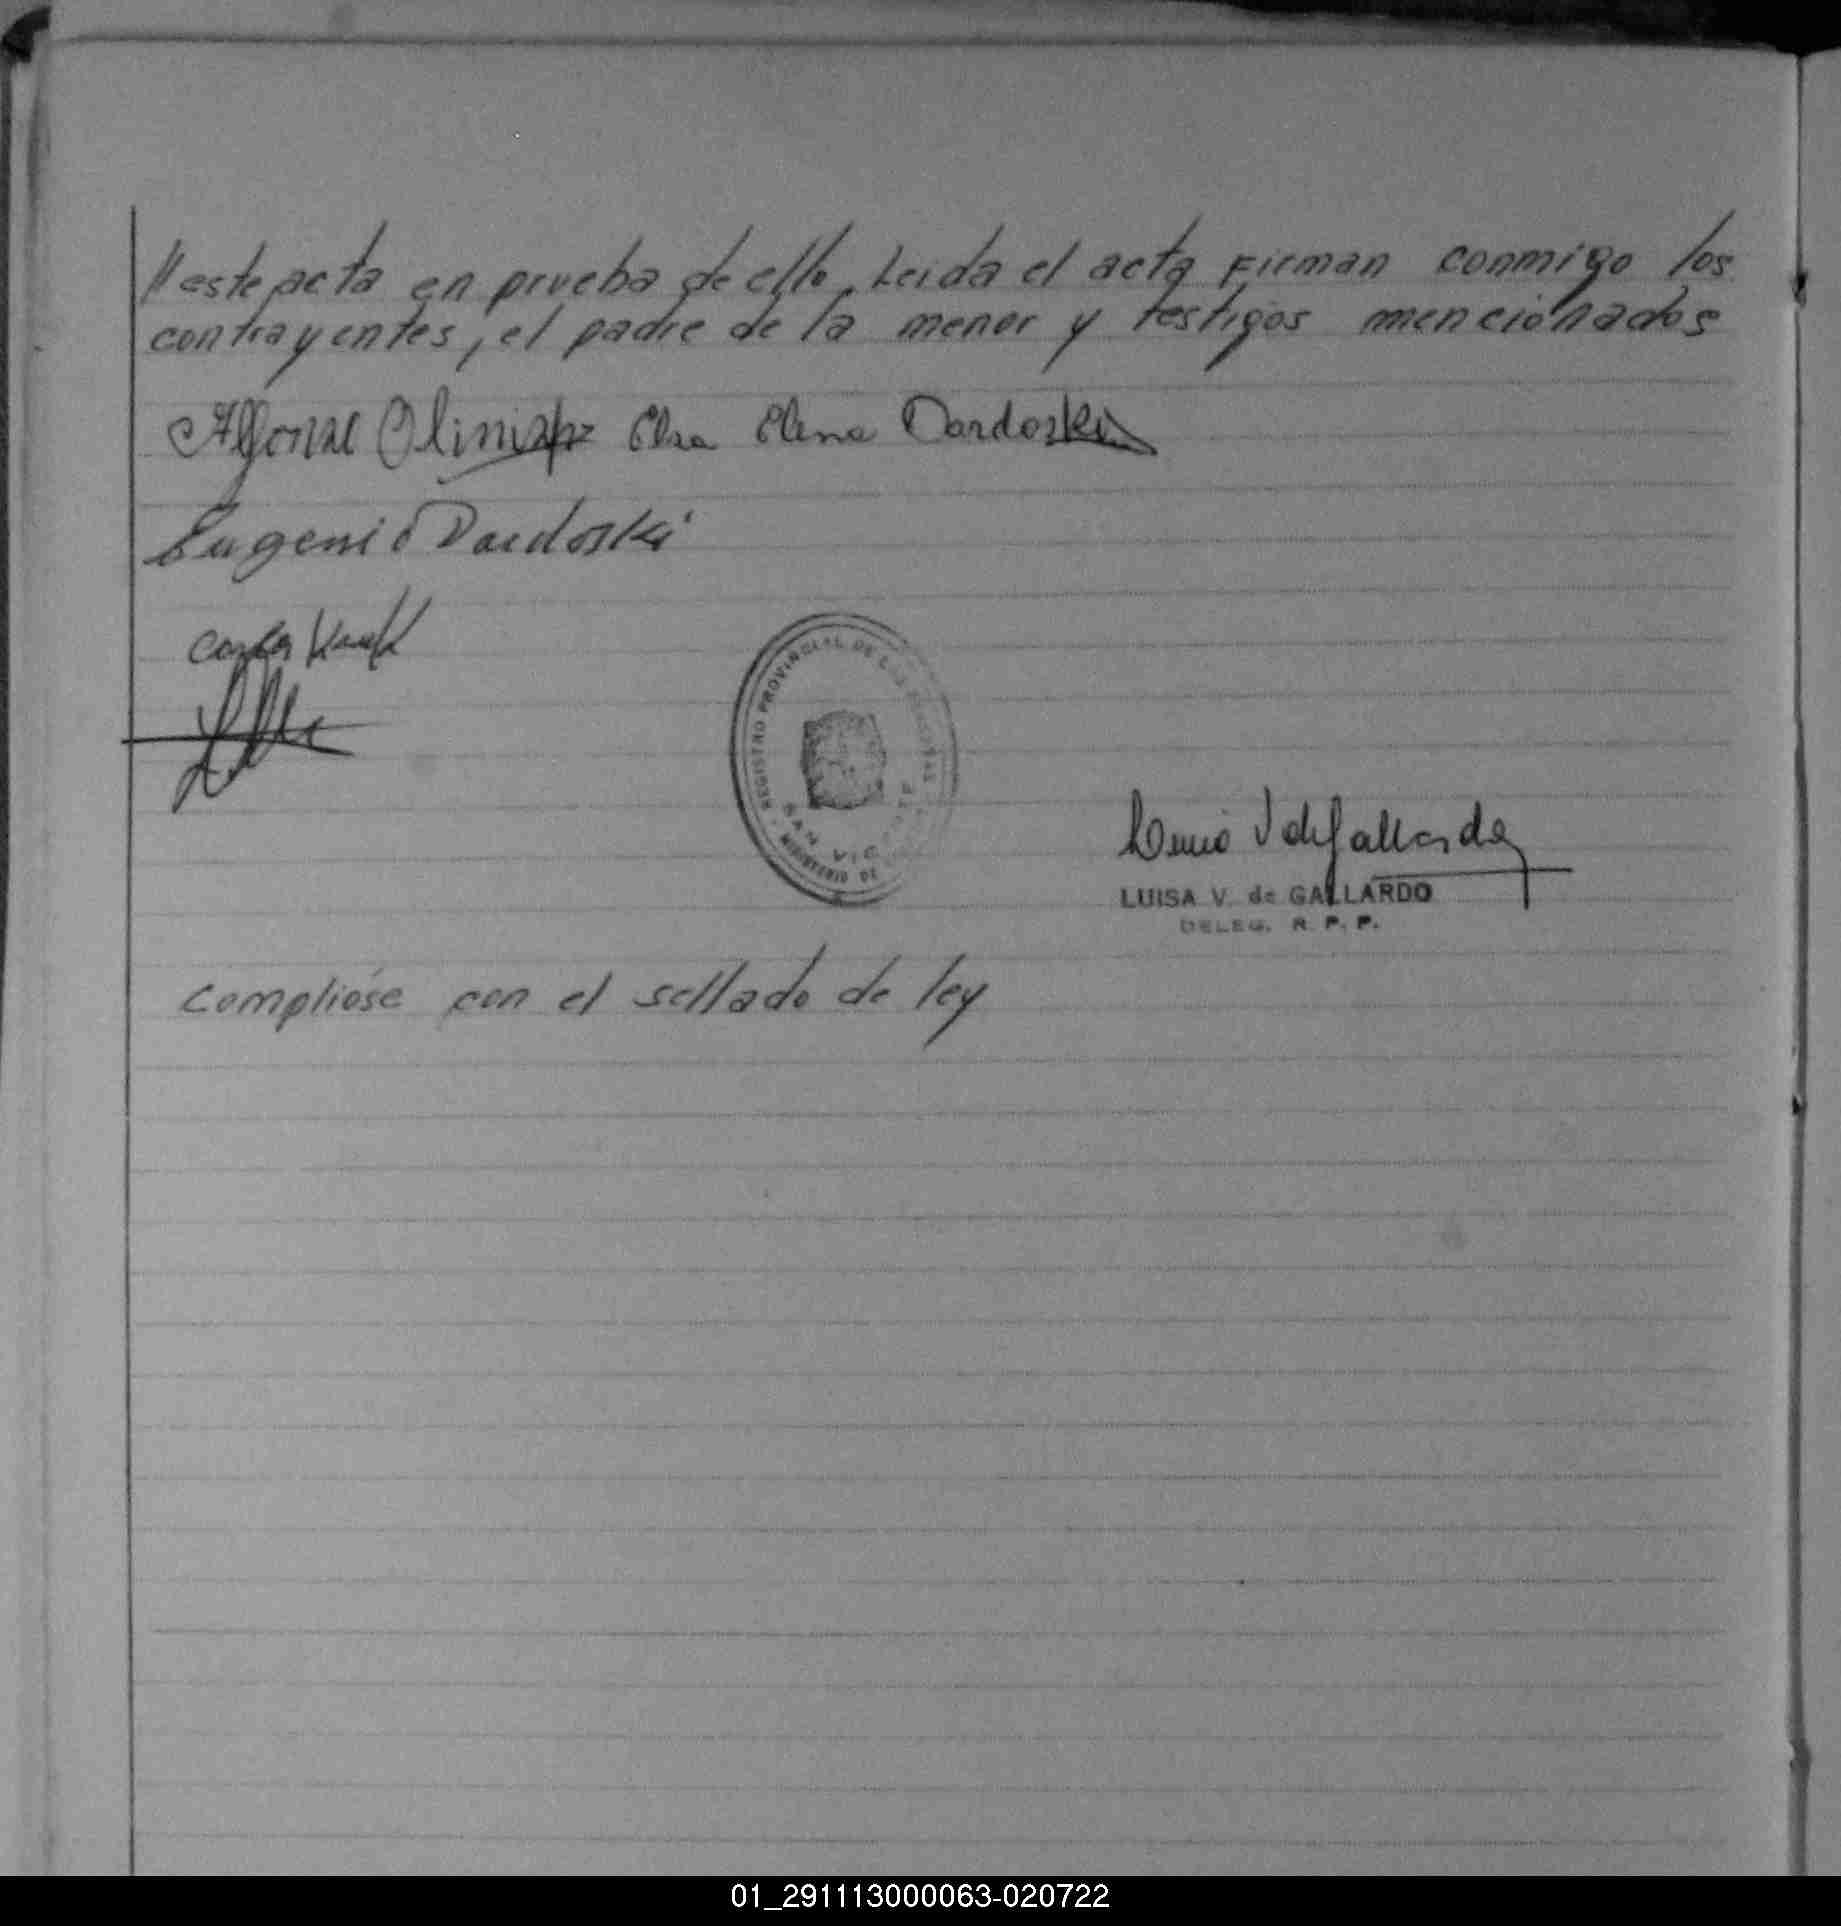 // este acta en prueba de ello. Leida el acta Firman conmigo los
contrayentes, el padre de la menor y testigos mencionados
Elsa Elena Dardoski
Eugenio Dardoski
REGISTRO PROVINCIAL DE LAS PERSONAS
SAN VICENTE
MINISTERIO DE
LUISA V. de GALLARDO
DELEG. R. P. P.
Compliose con el sellado de ley
01_291113000063-020722